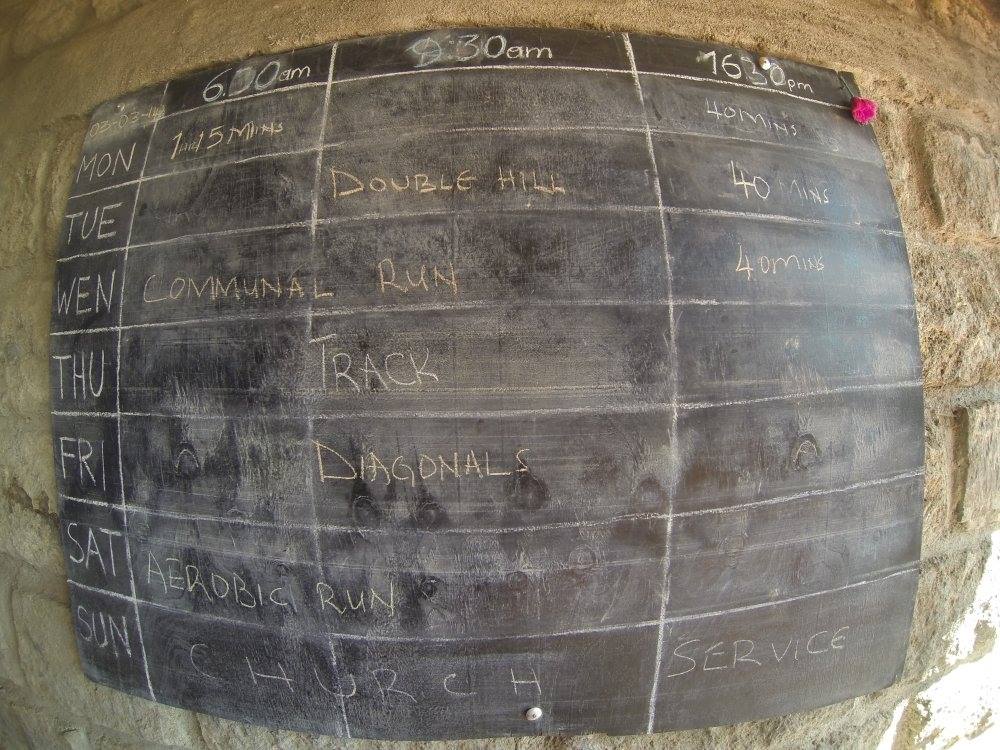 6.30am 9:30am 1630pm
MON 40MINS
TUE DOUBLE HILL 40 MINS
WEN COMMUNAL RUN 40MINS
THU TRACK
FRI DIAGONALS
SAT AEROBIC RUN
SUN CHURCH SERVICE